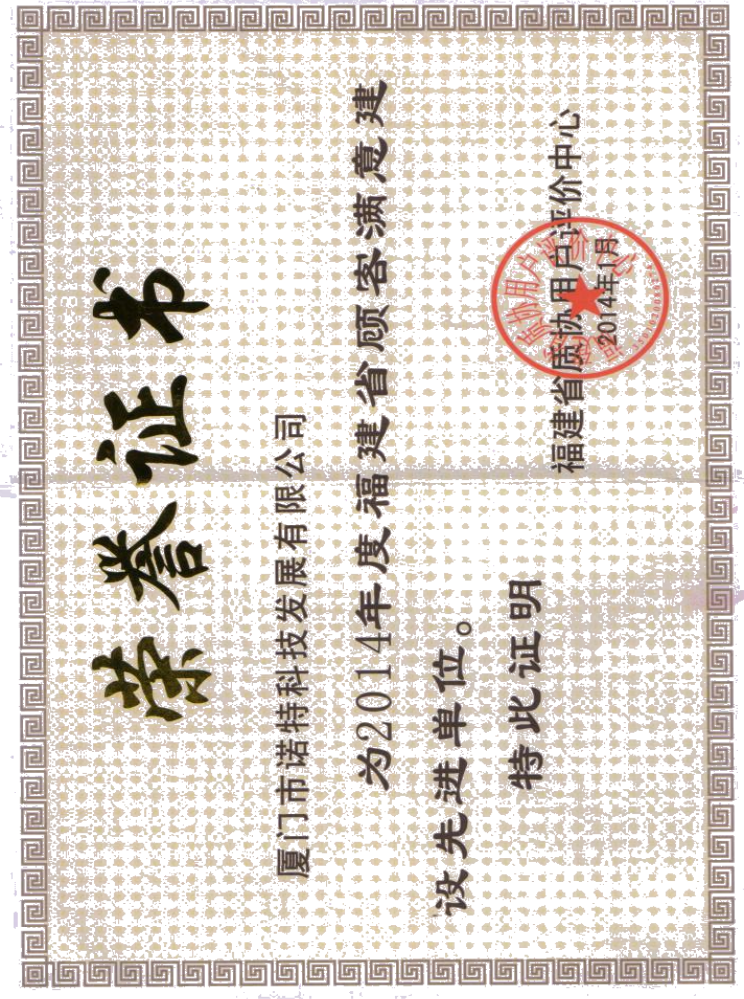 荣誉证书
厦门市诺特科技发展有限公司
为2014年度福建省顾客满意建
设先进单位。
特此证明
福建省质协用户评价中心
2014年1月